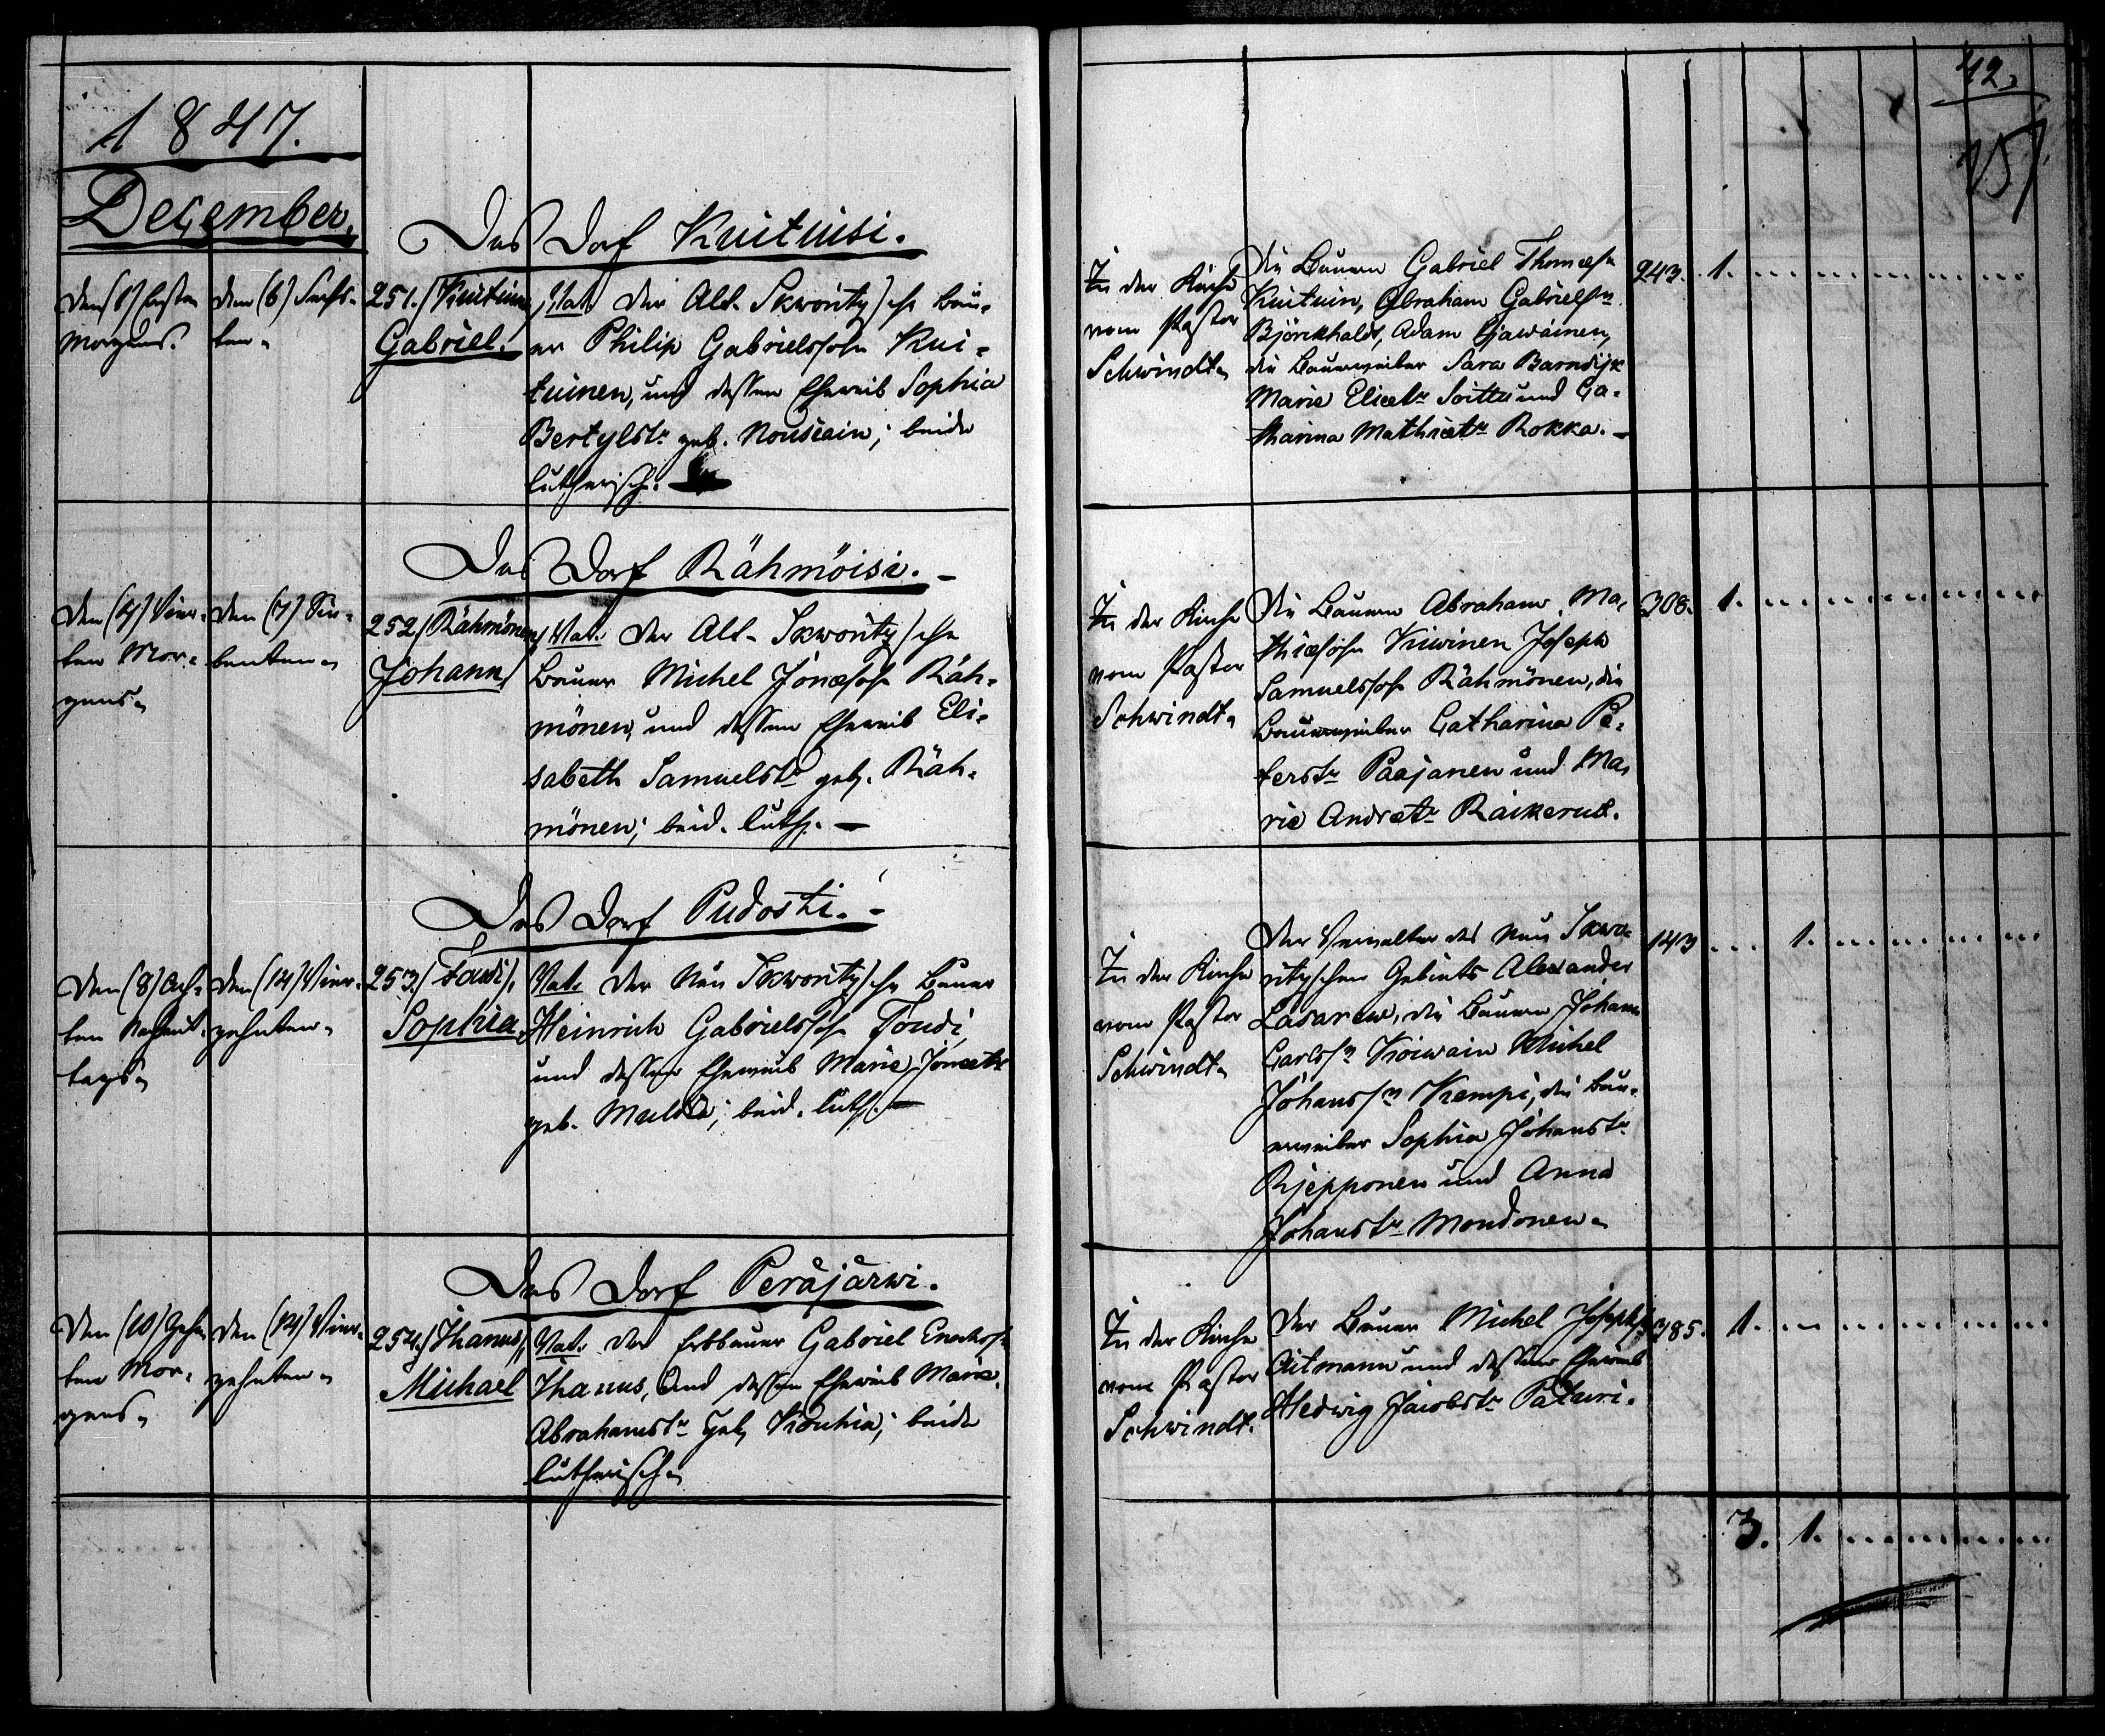 42.
157
1847.
December.
Das Dorf Kuituisi.
Den (1) Ersten
Morgens.
Den (6) Sechs-
ten.
251. / Kuituinen,
Gabriel.
Vat. der Alt. Skworitz/sche Bau-
er Philip Gabrielssohn Kui-
tuinen, und dessen Eheweib Sophia
Bertylstr. geb. Nousiain; beide
lutherisch. —
In der Kirche
vom Pastor
Schwindt.
Die Bauern Gabriel Thomæsn
Kuituin, Abraham Gabrielsn
Björckhaldt, Adam Ojawäinen,
die Bauerweiber Sara Barndijk
Marie Eliætr Soittu und Ca-
tharina Mathiætr Rokka. —
243. 1.
Das Dorf Rähmöisi. —
Den (4) Vier-
ten Mor-
gens.
Den (7) Sie-
benten.
252 / Rähmönen,
Johann
Vat. der Alt- Skworitz/sche
Bauer Michel Jonæsohn Räh-
mönen, und dessen Eheweib Eli-
sabeth Samuelstr geb. Räh-
mönen; beid. luth. —
In der Kirche
vom Pastor
Schwindt.
Die Bauern Abraham Ma-
thiæsohn Kiiwinen Joseph
Samuelssohn Rähmönen, die
Bauerweiber Catharina Pe-
terstr Paajanen und Ma-
rie Andrætr Räikerus.
308. 1.
Das Dorf Pudosti. —
Den (8) Ach-
ten Nachmit-
tags.
Den (14) Vier-
zehnten.
253. / Toudi,
Sophia,
Vat. der Neu Skworitz/sche Bauer
Heinrich Gabrielssohn Toudi,
und dessen Eheweib Marie Jonætr
geb. Mulda; beid. luth. —
In der Kirche
vom Pastor
Schwindt.
Der Verwalter des Neu Skwo-
ritzschen Gebiets Alexander
Lasarew, die Bauern Johann
Carlssn Koiwain Michel
Johanssn Kempi, die Bau-
erweiber Sophia Johanstr
Rjepponen und Anna
Johanstr Mondonen.
143 1.
Das Dorf Peräjärwi.
Den (10) Zehn-
ten Mor-
gens.
Den (14) Vier-
zehnten.
254. / Ihanus,
Michael
Vat. der Erbbauer Gabriel
Ihanus, und dessen Eheweib Marie
Abrahamstr geb. Kouhia; beide
lutherisch.
In der Kirche
vom Pastor
Schwindt.
Der Bauer Michel Josephsn
Aitmann und dessen Eheweib
Hedwig Jacobstr Paturi.
385. 1.
3. 1.